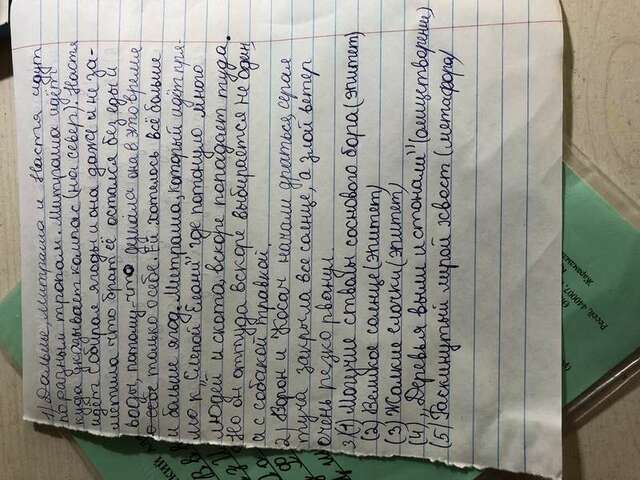 1) Дальше, Митраша и Настя идут
по разным тропам. Митраша идёт,
куда указывает компас (на север). Настя
идёт собирать ягоды и она даже и не за-
метила что брат её остался без еды и
воды, потому-что думала она в это время
только о себе. Ей хотелось всё больше
и больше ягод. Митраша, который идёт пря-
мо к "Слепой Елани", где погибло много
людей и скота вскоре попадает туда.
Но оттуда вскоре выбирается не один,
а с собакой Травкой.
2) Ворон и Ковач начали драться, серая
туча закрыла всё солнце, а злой ветер
очень резко рванул.
3) (1) Могучие стволы соснового бора (эпитет)
(2) Великое солнце (эпитет)
(3) Жалкие ёлочки (эпитет)
(4) "Деревья выли и стонали" (олицетворение)
(5) Раскинутый лирой хвост (метафора)
Россия, 440007,